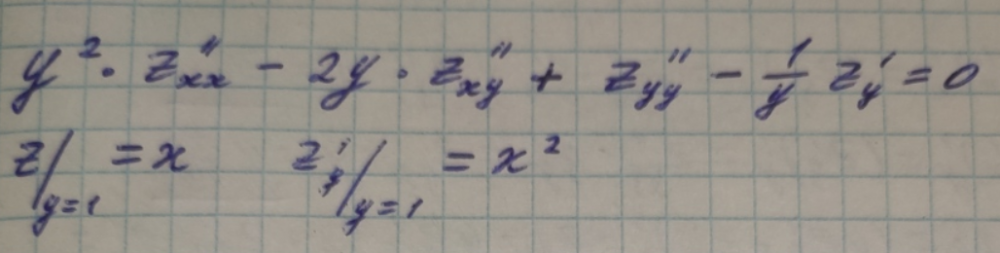 y²·z''xx − 2y·z''xy + z''yy − 1/y z'y = 0
z|y=1 = x z'y|y=1 = x²